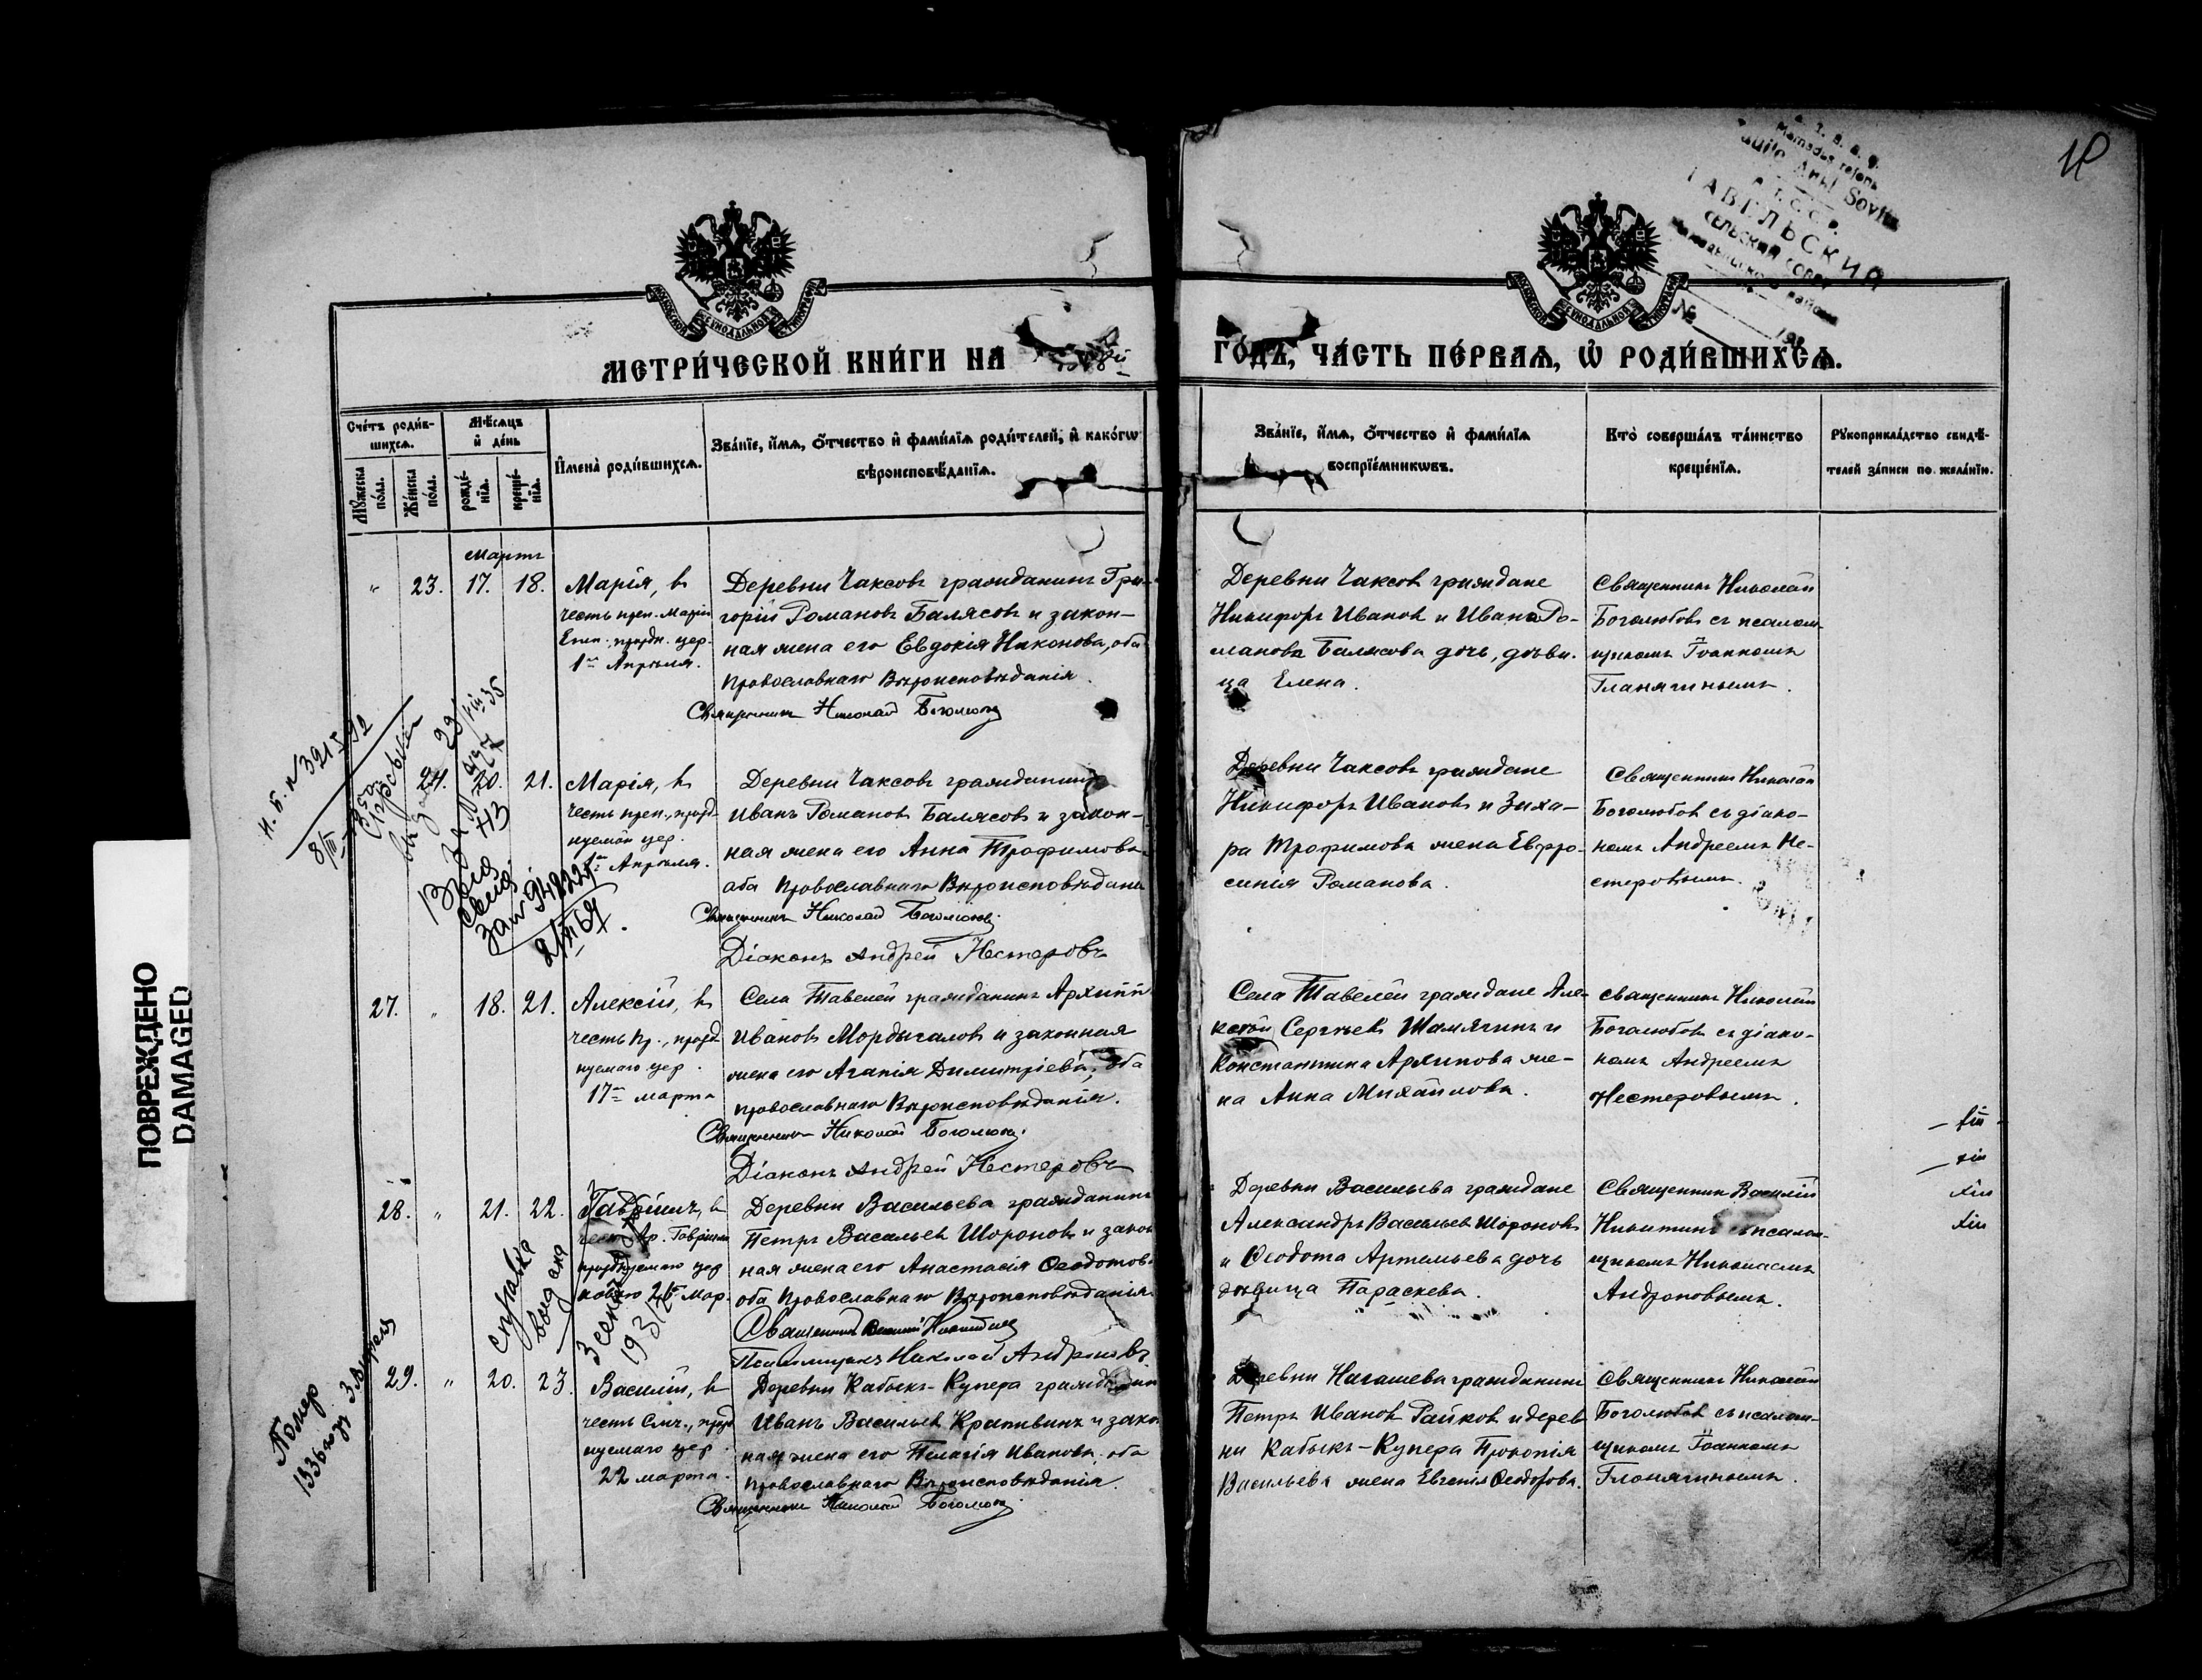 ПОВРЕЖДЕНО
DAMAGED
МЕТРИ́ЧЕСКОЙ КНИ́ГИ НА
ГО́ДЪ, ЧА́СТЬ ПЕ́РВАѦ, Ѡ҆ РОДИ́ВШИХСѦ.
Сче́тъ роди́в-
шихсѧ.
Мѣ́сѧцъ
и҆ де́нь
И҆мена̀ роди́вшихсѧ.
Зва́нїе, и҆́мѧ, ѻ҆́тчество и҆ фами́лїѧ роди́телей, и҆ како́гѡ
вѣроисповѣ́данїѧ.
Мꙋ́жеска
по́ла.
Же́нска
по́ла.
рожде́-
нїѧ.
креще́-
нїѧ.
Зва́нїе, и҆́мѧ, ѻ҆́тчество и҆ фами́лїѧ
воспрїе́мникѡвъ.
Кто̀ соверша́лъ та́инство
креще́нїѧ.
Рꙋкоприкла́дство свидѣ́-
телей за́писи по жела́нїю.
Мартъ
„ 23. 17. 18.
Марія, въ
честь преп. Маріи
Егип., праздн. цер.
1го Апрѣля.
Деревни Чаксовъ гражданинъ Гри-
горій Романовъ Балясовъ и закон-
ная жена его Евдокія Никонова, оба
Православнаго Вѣроисповѣданія.
Священникъ Николай Боголюбовъ
Деревни Чаксовъ граждане
Никифоръ Ивановъ и Ивана Ро-
манова Балясова дочь, дѣви-
ца Елена.
Священникъ Николай
Боголюбовъ съ псалом-
щикомъ Іоанномъ
24. 20. 21.
Марія, въ
честь преп., празд-
нуемой цер.
1го Апрѣля.
Деревни Чаксовъ гражданинъ
Иванъ Романовъ Балясовъ и закон-
ная жена его Анна Трофимова
оба Православнаго Вѣроисповѣданія
Священникъ Николай Боголюбовъ
Діаконъ Андрей Нестеровъ
Деревни Чаксовъ граждане
Никифоръ Ивановъ и Заха-
ра Трофимова жена Евфро-
синія Романова.
Священникъ Николай
Боголюбовъ съ діако-
номъ Андреемъ Не-
стеровымъ.
27. „ 18. 21.
Алексій, въ
честь пр., празд
нуемаго цер.
17го марта
Села Тавелей гражданинъ Архипп
Ивановъ Мордыгаловъ и законная
жена его Агапія Димитріева, оба
Православнаго Вѣроисповѣданія.
Священникъ Николай Боголюбовъ
Діаконъ Андрей Нестеровъ
Села Тавелей граждане Але-
ксѣй Сергѣевъ Шамягинъ и
Константина Архипова же-
на Анна Михайлова.
Священникъ Николай
Боголюбовъ съ діако-
номъ Андреемъ
Нестеровымъ.
28. „ 21. 22.
Гавріилъ, въ
честь Ар. Гавріила
празднуемаго цер
ковію 26го Мар.
Деревни Васильева гражданинъ
Петръ Васильевъ Шороновъ и закон
ная жена его Анастасія Ѳеодотова
оба Православнаго Вѣроисповѣданія.
Священникъ Василій Никитинъ
Псаломщикъ Николай Андроновъ
Деревни Васильева граждане
Александръ Васильевъ Шороновъ
и Ѳеодота Артемьева дочь
дѣвица Параскева.
Священникъ Василій
Никитинъ съ псалом-
щикомъ Николаемъ
Андроновымъ.
29. „ 20. 23.
Василій, въ
честь Смч., празд
нуемаго цер.
22 марта.
Деревни Кабыкъ-Купера гражданин
Иванъ Васильевъ Крапивинъ и закон
ная жена его Пелагія Иванова, оба
Православнаго Вѣроисповѣданія.
Священникъ Николай Боголюбовъ
Деревни Нагашева гражданинъ
Петръ Ивановъ Райковъ и дерев
ни Кабыкъ-Купера Прокопія
Васильева жена Евгенія Ѳеодорова.
Священникъ Николай
Боголюбовъ съ псалом-
щикомъ Іоанномъ
справка
выдана
3 сент
Помер
1936 году 3 Апреля